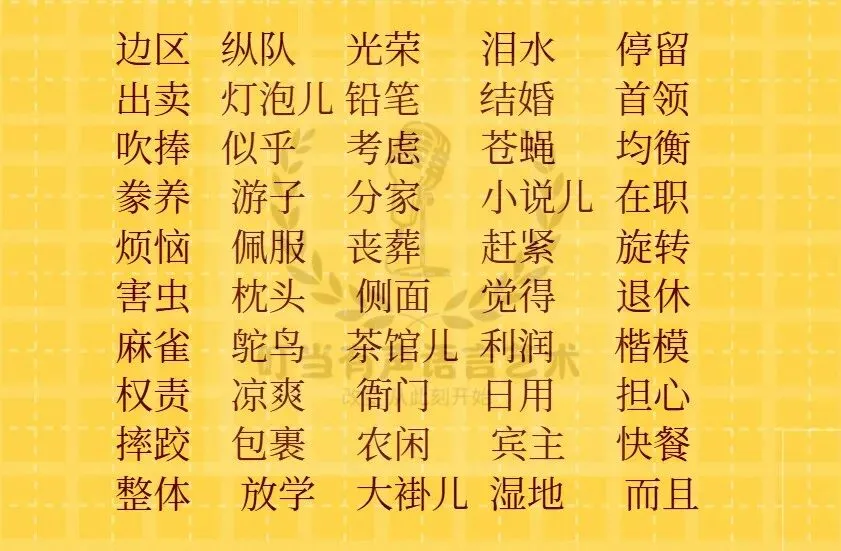 边区 纵队 光荣 泪水 停留
出卖 灯泡儿 铅笔 结婚 首领
吹捧 似乎 考虑 苍蝇 均衡
豢养 游子 分家 小说儿 在职
烦恼 佩服 丧葬 赶紧 旋转
害虫 枕头 侧面 觉得 退休
麻雀 鸵鸟 茶馆儿 利润 楷模
叮当有声语言艺术
权责 凉爽 衙门 日用 担心
改变从此刻开始
摔跤 包裹 农闲 宾主 快餐
整体 放学 大褂儿 湿地 而且